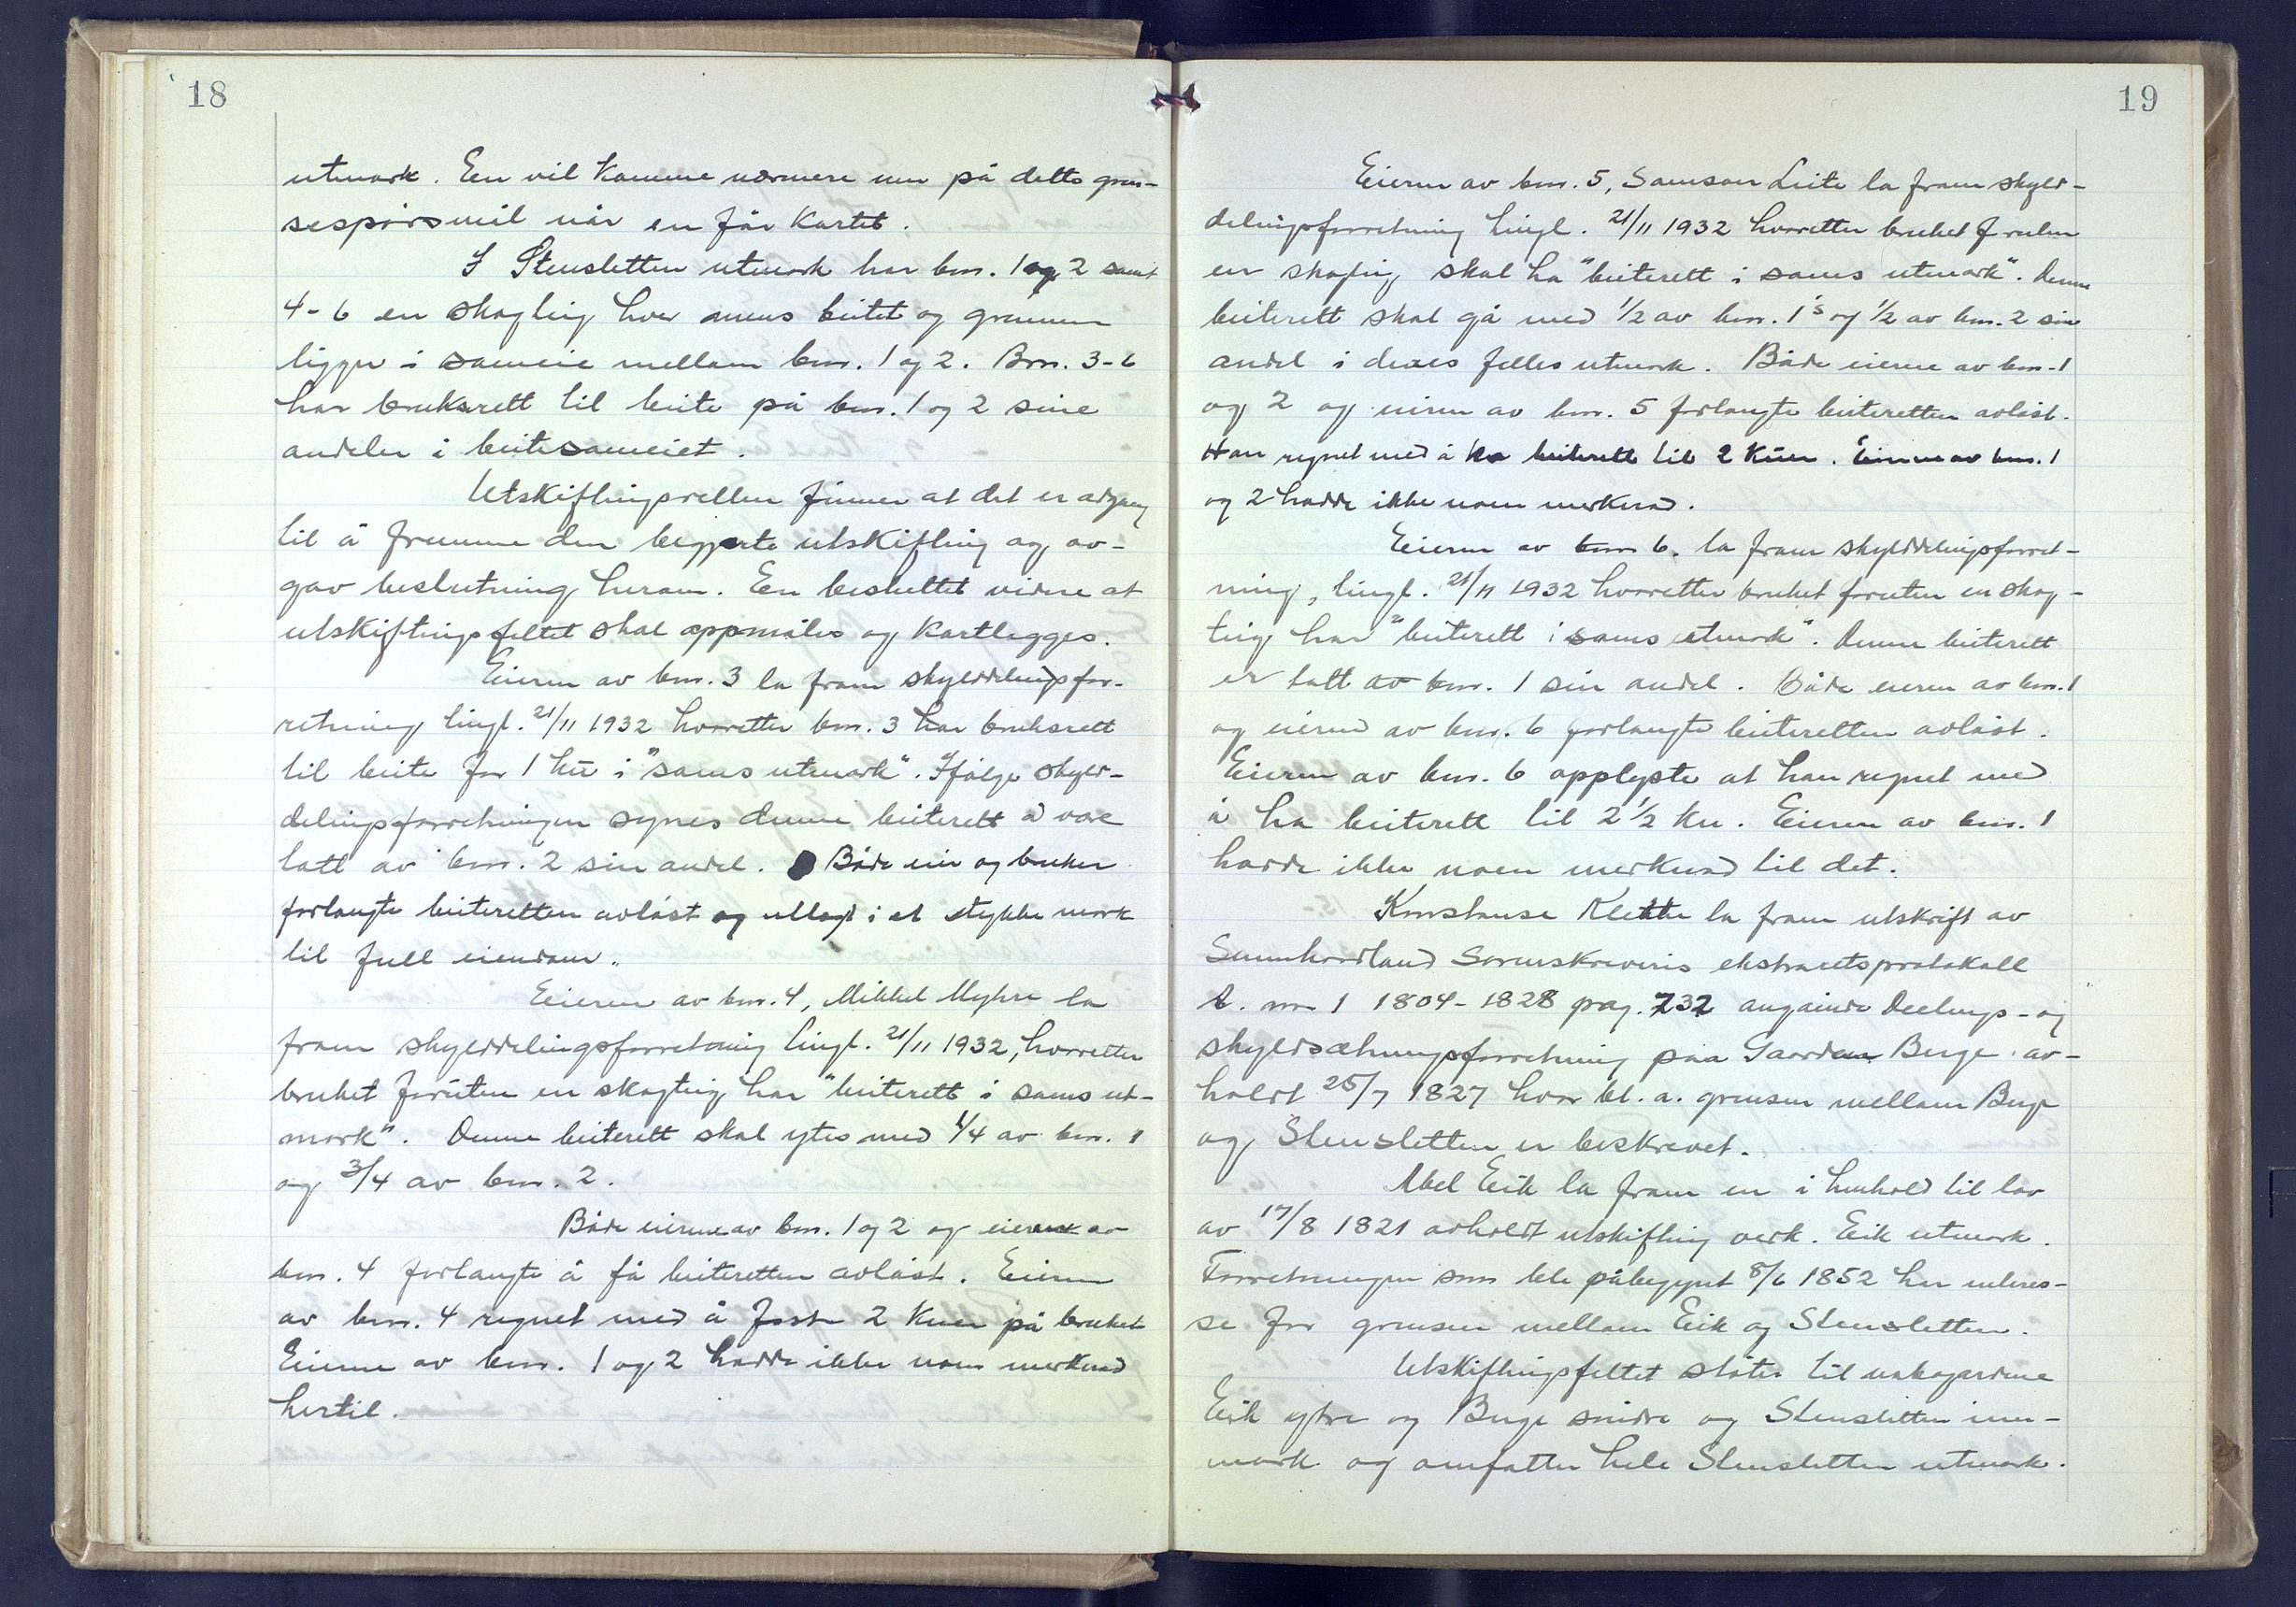 18
utmark. En vil komme nærmere inn på dette gren-
sespörsmål når en får kartet.
I Stensletten utmark har bnr. 1 og 2 samt
4-6 en skogteig hver mens beitet og grunnen
ligger i sameie mellom bnr. 1 og 2. Bnr. 3-6
har bruksrett til beite på bnr. 1 og 2 sine
andeler i beitesameiet.
Utskiftningsretten finner at det er adgang
til å fremme den begjærte utskifting og av-
gav beslutning herom. En besluttet videre at
utskiftingsfeltet skal oppmåles og kartlegges.
Eieren av bnr. 3 la fram skylddelingsfor-
retning tingl. 21/11 1932 hvoretter bnr. 3 har bruksrett
til beite for 1 ku i "sams utmark". Ifölge skyld-
delingsforretningen synes denne beiterett å være
tatt av bnr. 2 sin andel. Både eier og bruker
forlangte beiteretten avlöst og utlagt i et stykke mark
til full eiendom.
Eieren av bnr. 4, Mikkel Myhre la
fram skylddelingsforretning tingl. 21/11 1932, hvoretter
bruket foruten en skogteig har "beiterett i sams ut-
mark". Denne beiterett skal ytes med 1/4 av bnr. 1
og 3/4 av bnr. 2.
Både eierne av bnr. 1 og 2 og eieren av
bnr. 4 forlangte å få beiteretten avlöst. Eieren
av bnr. 4 regnet med å fostre 2 kuer på bruket
Eierne av bnr. 1 og 2 hadde ikke noen merknad
hertil.
19
Eieren av bnr. 5, Samson Leite la fram skyld-
delingsforretning tingl. 21/11 1932 hvoretter bruket foruten
en skogteig skal ha "beiterett i sams utmark". Denne
beiterett skal gå med 1/2 av bnr. 1's og 1/2 av bnr. 2 sin
andel i deres felles utmark. Både eierne av bnr. 1
og 2 og eieren av bnr. 5 forlangte beiteretten avlöst.
Han regnet med å ha beiterett til 2 kuer. Eierne av bnr. 1
og 2 hadde ikke noen merknad.
Eieren av bnr 6. la fram skylddelingsforret-
ning, tingl. 21/11 1932 hvoretter bruket foruten en skog-
teig har "beiterett i sams utmark". Denne beiterett
er tatt av bnr. 1 sin andel. Både eieren av bnr. 1
og eieren av bnr. 6 forlangte beiteretten avlöst.
Eieren av bnr. 6 opplyste at han regnet med
å ha beiterett til 2 1/2 ku. Eieren av bnr. 1
hadde ikke noen merknad til det.
Konstanse Klette la fram utskrift av
Sunnhordland Sorenskriveris ekstraretsprotokoll
nr 1 1804-1828 pag. 232 angående Deelings- og
skyldsætningsforretning paa Gaarden Berge av-
holdt 25/7 1827 hvor bl. a. grensen mellom Berge
og Stensletten er beskrevet.
Abel Eik la fram en i henhold til lov
av 17/8 1821 avholdt utskifting vedk. Eik utmark.
Forretningen som ble påbegynt 8/6 1852 har interes-
se for grensen mellom Eik og Stensletten.
Utskiftingsfeltet stöter til nabogardene
Eik ytre og Berge and Stensletten inn-
mark og omfatter hele Stensletten utmark.